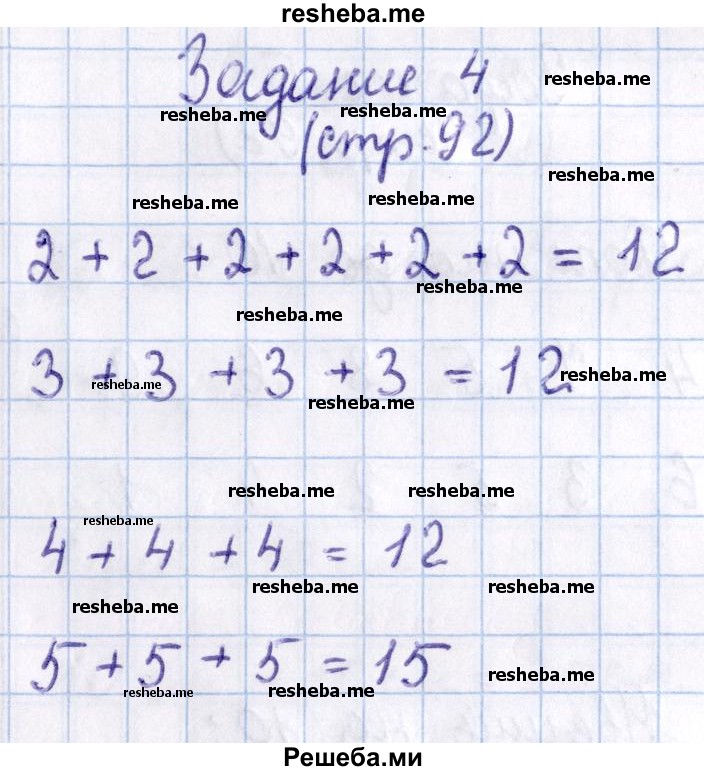 resheba.me
Задание 4 resheba.me
resheba.me resheba.me
(стр. 92)
resheba.me
resheba.me resheba.me
2 + 2 + 2 + 2 + 2 + 2 = 12
resheba.me
resheba.me
3 + 3 + 3 + 3 = 12 resheba.me
resheba.me
resheba.me
resheba.me resheba.me
resheba.me
4 + 4 + 4 = 12
resheba.me resheba.me
resheba.me
5 + 5 + 5 = 15 resheba.me
resheba.me resheba.me
Решеба.ми